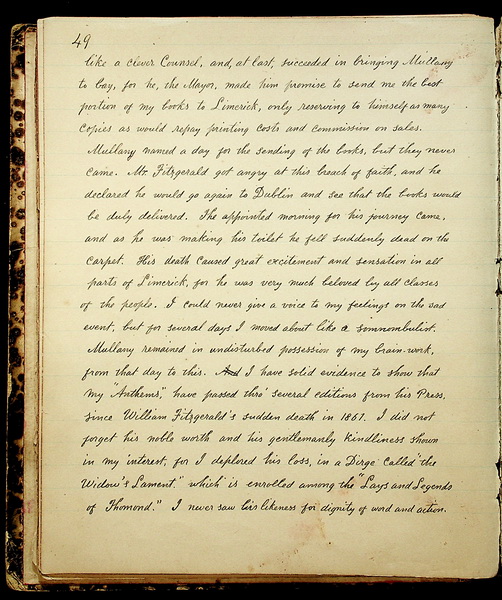 49
like a clever Counsel, and, at last, succeeded in bringing Mullany
to bay, for he, the Mayor, made him promise to send me the best
portion of my books to Limerick, only reserving to himself as many
Copies as would repay printing costs and commission on sales.
Mullany named a day for the sending of the books, but they never
came. Mr. Fitzgerald got angry at this breach of faith, and he
declared he would go again to Dublin and see that the books would
be duly delivered. The appointed morning for his journey came,
and as he was making his toilet he fell suddenly dead on the
Carpet. His death caused great excitement and sensation in all
parts of Limerick, for he was very much beloved by all classes
of the people. I could never give a voice to my feelings on the sad
event, but for several days I moved about like a somnombulist.
Mullany remained in undisturbed possession of my brain-work,
from that day to this. And I have solid evidence to show that
my "Anthems", have passed thro' several editions from his Press,
since William Fitzgerald's sudden death in 1867. I did not
forget his noble worth and his gentlemanly kindliness shown
in my interest, for I deplored his loss, in a Dirge called "the
Widow's Lament." which is enrolled among the "Lays and Legends
of Thomond." I never saw his likeness for dignity of word and action.